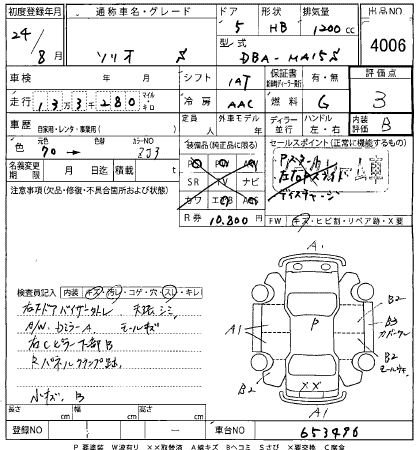 初度登録年月 通称車名・グレード ドア 形状 排気量 出品NO
24/8月 ソリオ S 5 HB 1200cc 4006
型式 DBA-MA15S
車検 年 月 シフト IAT 保証書 有・無 評価点
走行 13万3千280 マイル キロ 冷房 AAC 燃料 G 3
車歴 自家用・レンタ・事業用( ) 定員 人 外車モデル 年 ディーラー 並行 ハンドル 左・右 内装評価 B
色 70→ 色替 カラーNO ZJ3 装備品(純正品に限る) セールスポイント(正常に機能するもの)
名義変更期限 月 日迄 積載 t
SR TV ナビ
カワ エアB
注意事項(欠品・修復・不具合箇所および状態)
R券 10,800円 FW キズ・ヒビ割・リペア跡・X要
検査員記入 内装 キズ・汚レ・コゲ・穴・スレ・キレ
右ドアバイザークトレ 天張シミ
A/W、カミラーA モールキズ
右Cピラー下部B
Rパネルクランプ跡
小キズ、B
A1
A1
P
B2
B2
B2
XX
A1
長さ cm 幅 cm 高さ cm
登録NO — 車台NO 653496
P要塗装 W波有り XX取替済 A線キズ Bヘコミ Sさび X要交換 C腐食